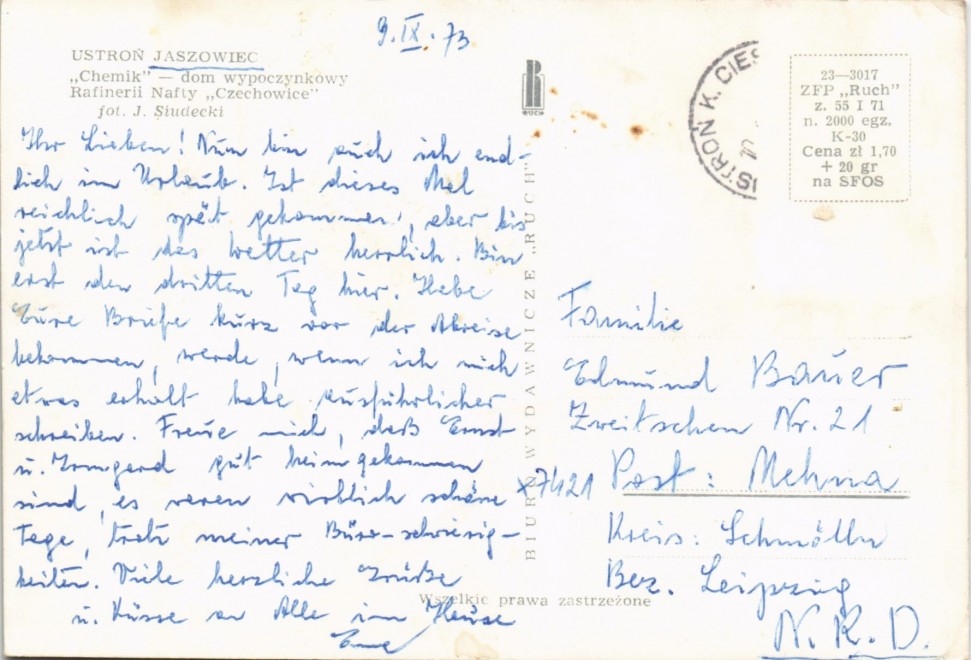 9.IX.73
USTROŃ JASZOWIEC
„Chemik” — dom wypoczynkowy
Rafinerii Nafty „Czechowice”
fot. J. Siudecki
Ihr Lieben! Nun bin auch ich end-
lich im Urlaub. Ist dieses Mal
reichlich spät gekommen, aber bis
jetzt ist das Wetter herrlich. Bin
erst den dritten Tag hier. Habe
Eure Briefe kurz vor der Abreise
bekommen, werde, wenn ich mich
etwas erholt habe ausführlicher
schreiben. Freue mich, daß Ernst
u. Irmgard gut heimgekommen
sind, es waren wirklich schöne
Tage, trotz meiner Büro-schwierig-
keiten. Viele herzliche Grüße
u. Küsse an Alle im Hause
RUCH
BIURO WYDAWNICZE „RUCH”
Wszelkie prawa zastrzeżone
USTROŃ K. CIES
23—3017
ZFP „Ruch”
z. 55 I 71
n. 2000 egz.
K-30
Cena zł 1,70
+ 20 gr
na SFOS
Familie
Edmund Bauer
Zweitschen Nr. 21
x7421 Post: Mehna
Kreis: Schmölln
Bez. Leipzig
N.R.D.